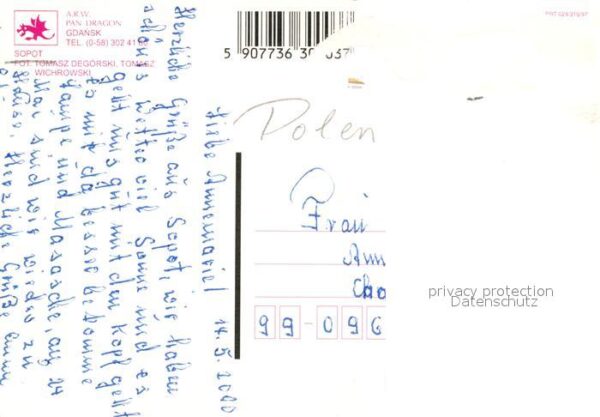 A.R.W.
PAN DRAGON
GDAŃSK
TEL. (0-58) 302 41
SOPOT
FOT. TOMASZ DEGÓRSKI, TOMASZ
WICHROWSKI
5 907736 30 037
Polen
14.5.2000
Liebe Annemarie!
Herzliche Grüße aus Sopot, wir haben
schönes Wetter viel Sonne und es
geht uns gut mit dem Kopf geht
es mir da besser bekomme
und Massasche, am 24
Mai sind wir wieder zu
Hause. Herzliche Grüße
Frau
Ann
99-096
privacy protection
Datenschutz